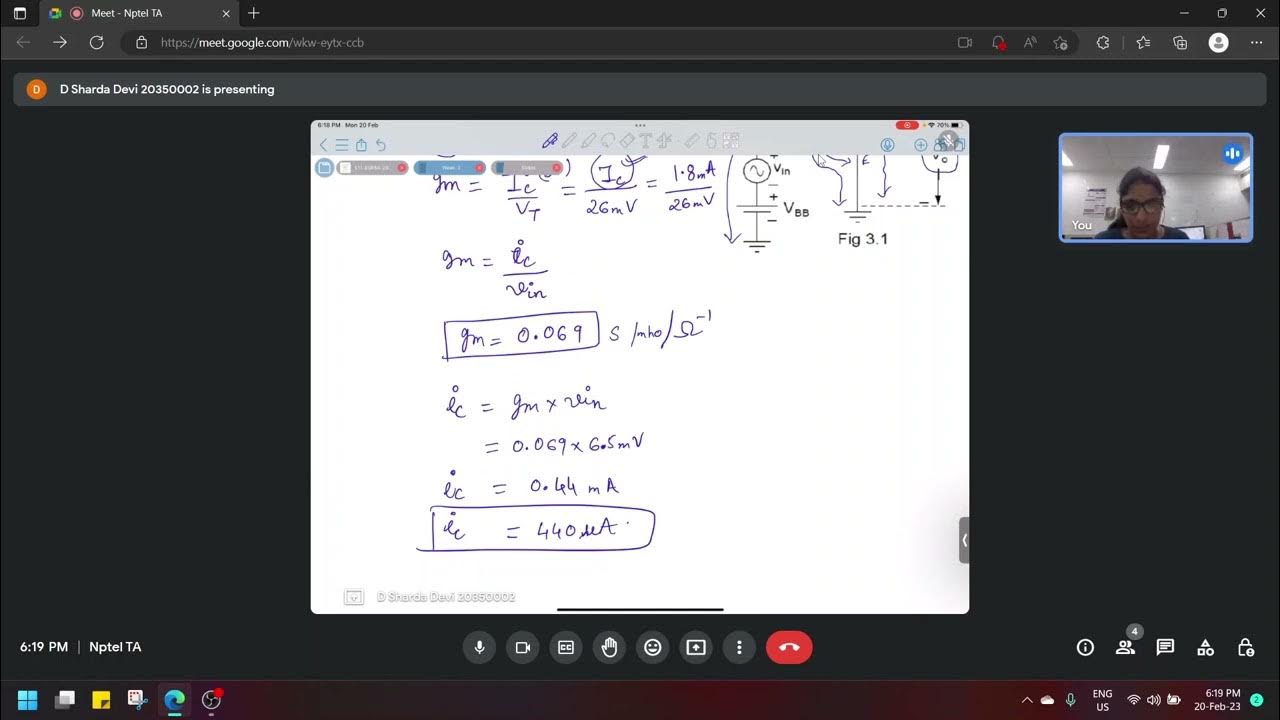 Meet - Nptel TA
https://meet.google.com/wkw-eytx-ccb
D
D Sharda Devi 20350002 is presenting
6:18 PM Mon 20 Feb
70%
gm = Ic / VT = Ic / 26mV = 1.8mA / 26mV
+
Vin
−
+
VBB
−
E
Vo
−
Fig 3.1
gm = ic / vin
gm = 0.069 S /mho/Ω⁻¹
ic = gm × vin
= 0.069 × 6.5mV
ic = 0.44 mA
ic = 440 μA
D Sharda Devi 20350002
You
6:19 PM | Nptel TA
4
ENG
US
6:19 PM
20-Feb-23
2